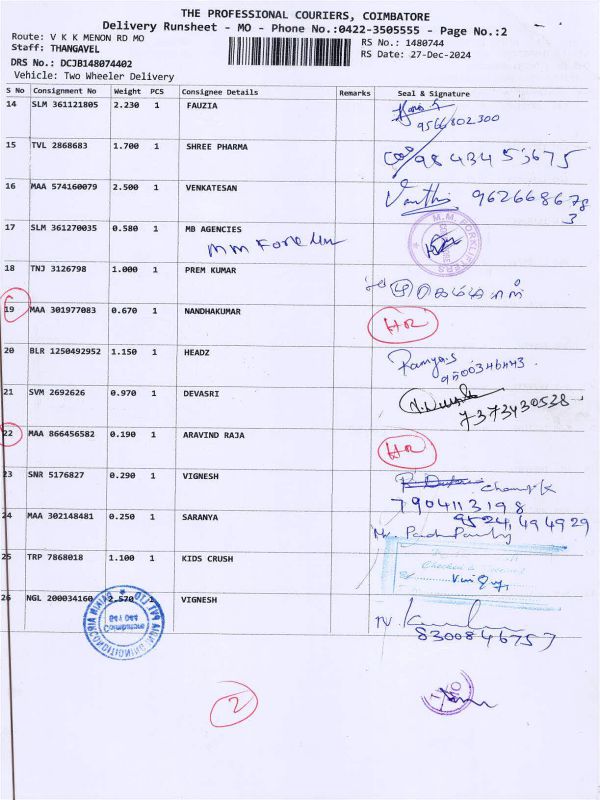 THE PROFESSIONAL COURIERS, COIMBATORE
Delivery Runsheet - MO - Phone No.:0422-3505555 - Page No.:2
Route: V K K MENON RD MO
Staff: THANGAVEL
RS No.: 1480744
DRS No.: DCJB148074402
RS Date: 27-Dec-2024
Vehicle: Two Wheeler Delivery
S No Consignment No Weight PCS Consignee Details Remarks Seal & Signature
14 SLM 361121805 2.230 1 FAUZIA
9566802300
15 TVL 2868683 1.700 1 SHREE PHARMA
9843453675
16 MAA 574160079 2.500 1 VENKATESAN
9626686783
17 SLM 361270035 0.580 1 MB AGENCIES
M.M. FORKLIFTERS
18 TNJ 3126798 1.000 1 PREM KUMAR
19 MAA 301977083 0.670 1 NANDHAKUMAR
HR
20 BLR 1250492952 1.150 1 HEADZ
Ramya.S
9500346443
21 SVM 2692626 0.970 1 DEVASRI
7373430538
22 MAA 866456582 0.190 1 ARAVIND RAJA
HR
23 SNR 5176827 0.290 1 VIGNESH
7904113198
24 MAA 302148481 0.250 1 SARANYA
9524,494929
25 TRP 7868018 1.100 1 KIDS CRUSH
26 NGL 200034160 2.570 1 VIGNESH
8300846757
2